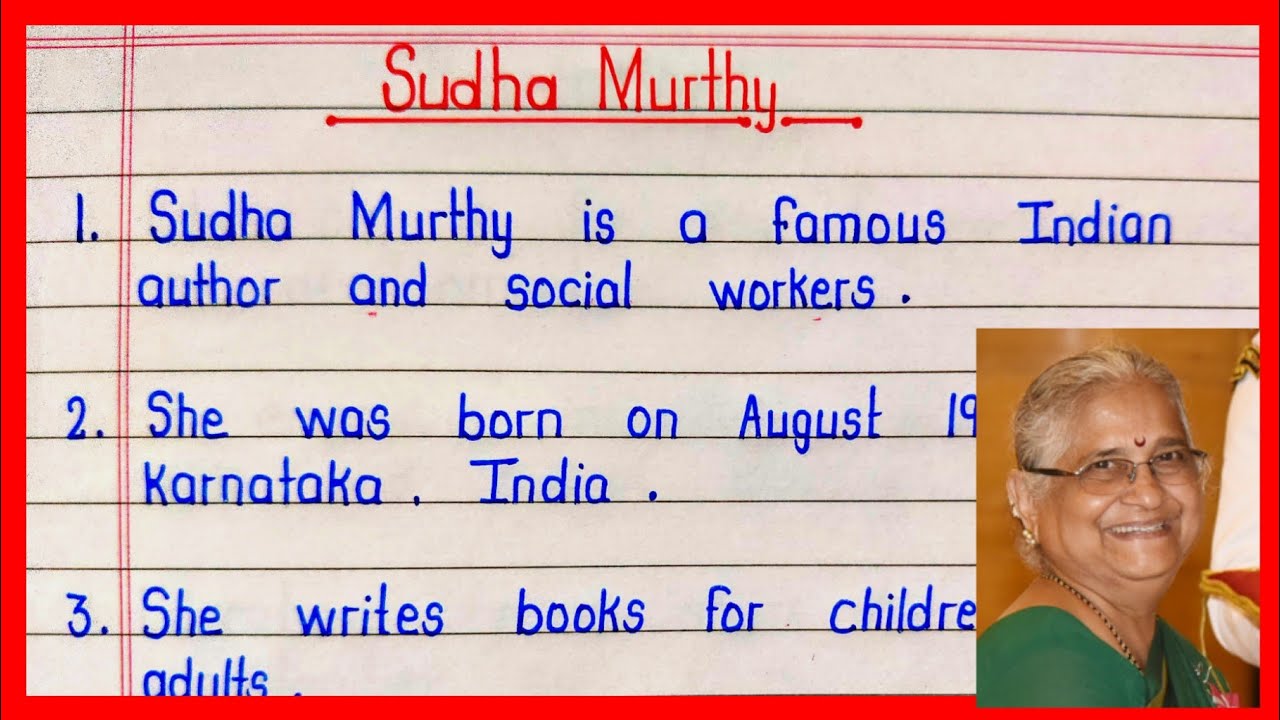 Sudha Murthy
1. Sudha Murthy is a famous Indian
author and social workers.
2. She was born on August 19
Karnataka. India.
3. She writes books for childre
adults.